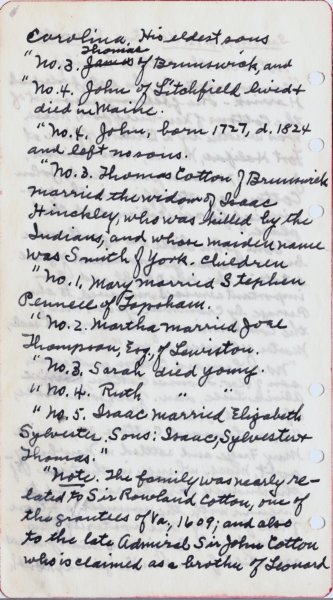 Carolina. His eldest sons
Thomas
"No. 3. James of Brunswick, and
"No. 4. John of Litchfield lived &
died in Maine.
"No. 4. John, born 1727, d. 1824
and left no sons.
"No. 3. Thomas Cotton of Brunswick
married the widow of Isaac
Hinckley, who was killed by the
Indians, and whose maiden name
was Smith of York. Children
"No. 1, Mary married Stephen
Pennell of Topsham.
"No. 2. Martha married Joel
Thompson, Esq., of Lewiston.
"No. 3, Sarah died young.
"No. 4. Ruth " "
"No. 5. Isaac married Elizabeth
Sylvester. Sons: Isaac, Sylvester &
Thomas."
"Note. The family was nearly re-
lated to Sir Rowland Cotton, one of
the grantees of Va, 1609; and also
to the late Admiral Sir John Cotton
who is claimed as a brother of Leonard